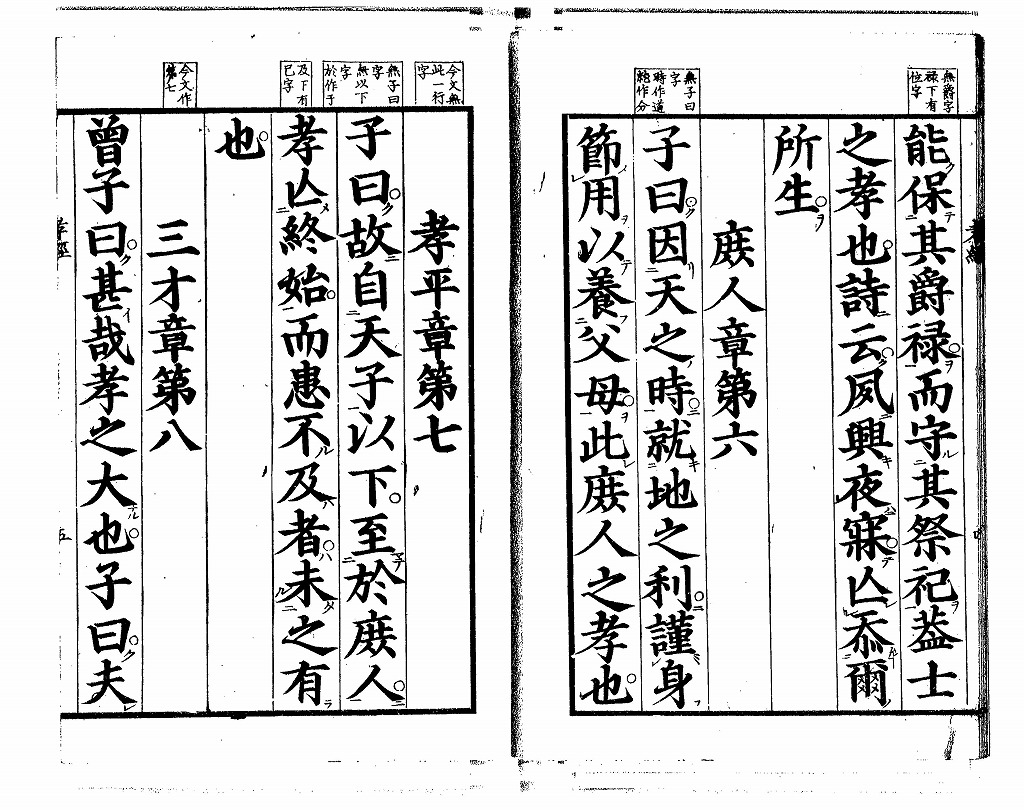 無爵字
禄下有
位字
能保其爵禄而守其祭祀葢士
之孝也詩云夙興夜寐亡忝爾
所生
庻人章第六
無子曰
字
時作道
就作分
子曰因天之時就地之利謹身
節用以養父母此庻人之孝也
今文無
此一行
字
孝平章第七
無子曰
字
無以下
字
於作于
子曰故自天子以下至於庻人
及下有
已字
孝亡終始而患不及者未之有
也
今文作
第七
三才章第八
曾子曰甚哉孝之大也子曰夫
孝經
五